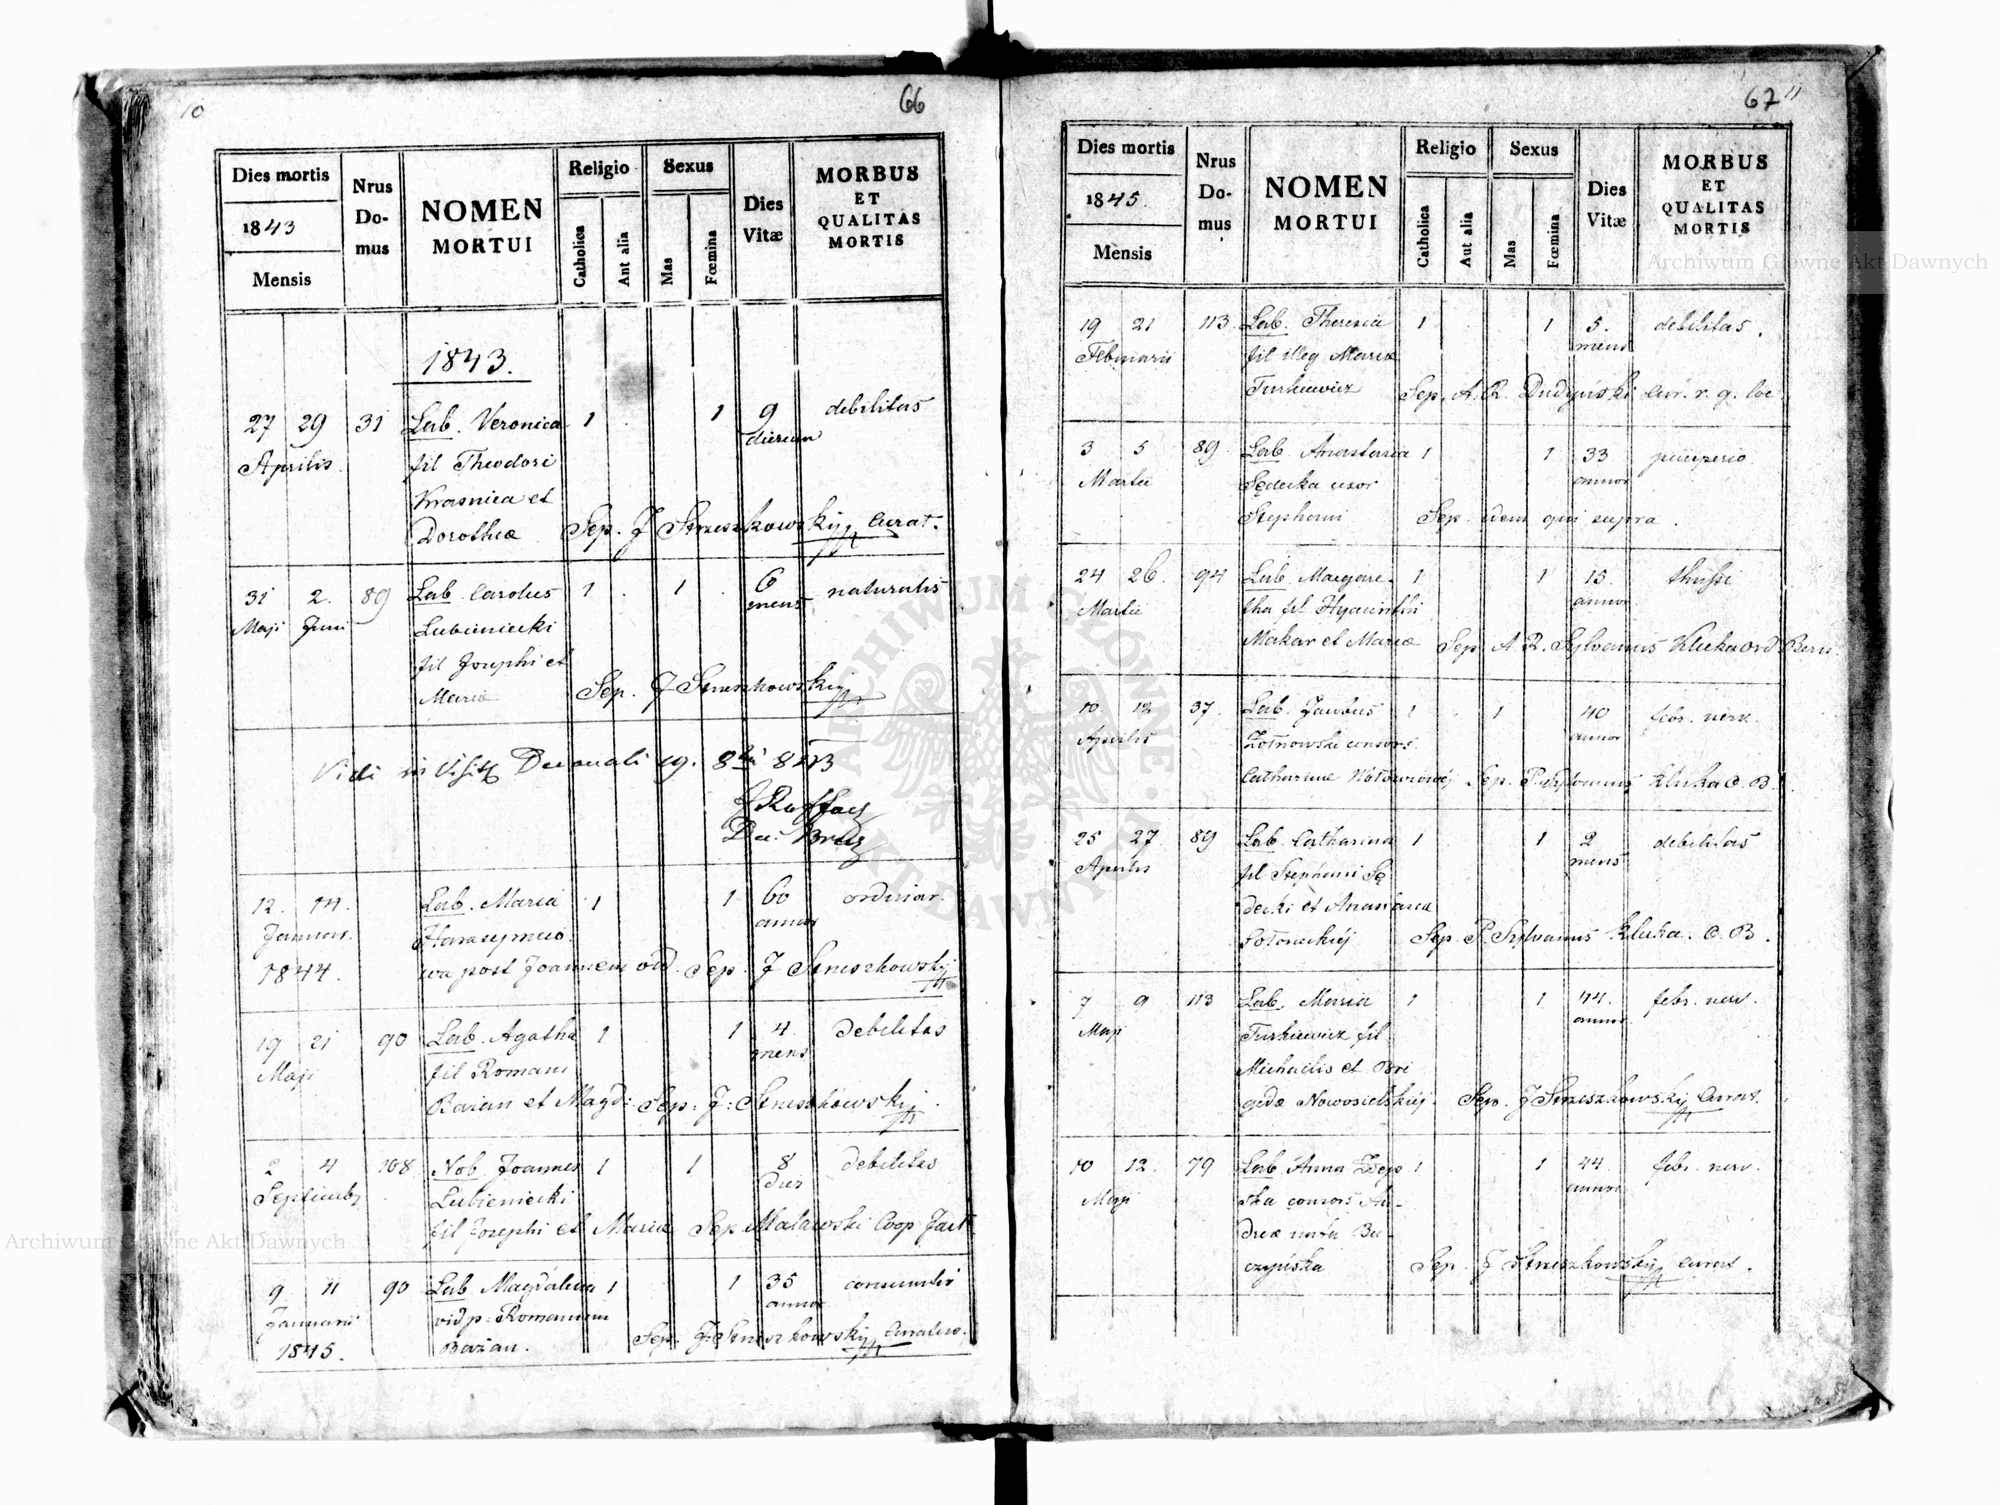 10
66
Dies mortis
1843
Mensis
Nrus Do-mus
NOMEN
MORTUI
Religio
Catholica
Aut alia
Sexus
Mas
Fœmina
Dies
Vitæ
MORBUS
ET
QUALITAS
MORTIS
1843.
27 29 31 Lab. Veronica 1 1 9 debilitas
Aprilis fil Theodori dierum
Krasnica et
Dorotheæ Sep. J Strzeszkowskij Curat.
31 2. 89 Lab. Carolus 1 1 6 naturalis
Maji Juni Lubieniecki mens
fil Josephi et
Mariæ Sep. J Strzeszkowskij
Vidi in Visit Decanali 19. 8bri 843
12. 14. Lab. Maria 1 1 60 ordinar.
Januar. Harasymio annor
1844. wa post Joannem vid. Sep. J Strzeszkowskij
19 21 90 Lab. Agatha 1 1 4 debilitas
Maji fil Romani mens
Bazan et Magd: Sep: J: Strzeszkowskij.
2 4 108 Nob. Joannes 1 1 8 debilitas
Septembr Lubieniecki dies
fil Josephi et Mariæ Sep Malawski Coop
9 11 90 Lab. Magdalena 1 1 35
Januarii vid p: Romanum annor
1845. Bazan. Sep. J: Strzeszkowskij Curatus.
67
11
Dies mortis
1845.
Mensis
Nrus Do-mus
NOMEN
MORTUI
Religio
Catholica
Aut alia
Sexus
Mas
Fœmina
Dies
Vitæ
MORBUS
ET
QUALITAS
MORTIS
19 21 113. Lab. Theresia 1 1 5. debilitas.
Februarii fil illeg Mariæ mens
Turkiewicz Sep. A. R. Dudyński Cur. r. g. loc
3 5 89. Lab. Anastasia 1 1 33 puerperio
Martii Sędecka uxor annor
Stephani Sep. idem qui supra.
24 26. 94 Lab. Margare- 1 1 15. thussi
Martii tha fil Hyacinthi annor.
Makar et Mariæ Sep. A. R. Sylvanus Kluka ord Bern.
10 12 37. Lab. Jacobus 1 1 40 febr. nerv.
Aprilis consors annor
Catharinæ Sep. P. Sylvanus Kluka O. B.
25 27 89 Lab Catharina 1 1 2 debilitas
Aprilis fil Stephani Sę mens
decki et Anastasia
Sep. P. Sylvanus Kluka. O. B.
7 9 113 Lab. Maria 1 1 44. febr. nerv.
Maji Turkiewicz fil. annor
Michaelis et Bri
gidæ Nowosielskiej. Sep. J Strzeszkowskij Curat.
10 12. 79 Lab Anna 1 1 44. febr. nerv.
Maji ska consors An- annor
dreæ nata Bu-
czyńska Sep. J Strzeszkowskij Curat.
Archiwum Główne Akt Dawnych
Archiwum Główne Akt Dawnych
ARCHIWUM GŁÓWNE AKT DAWNYCH